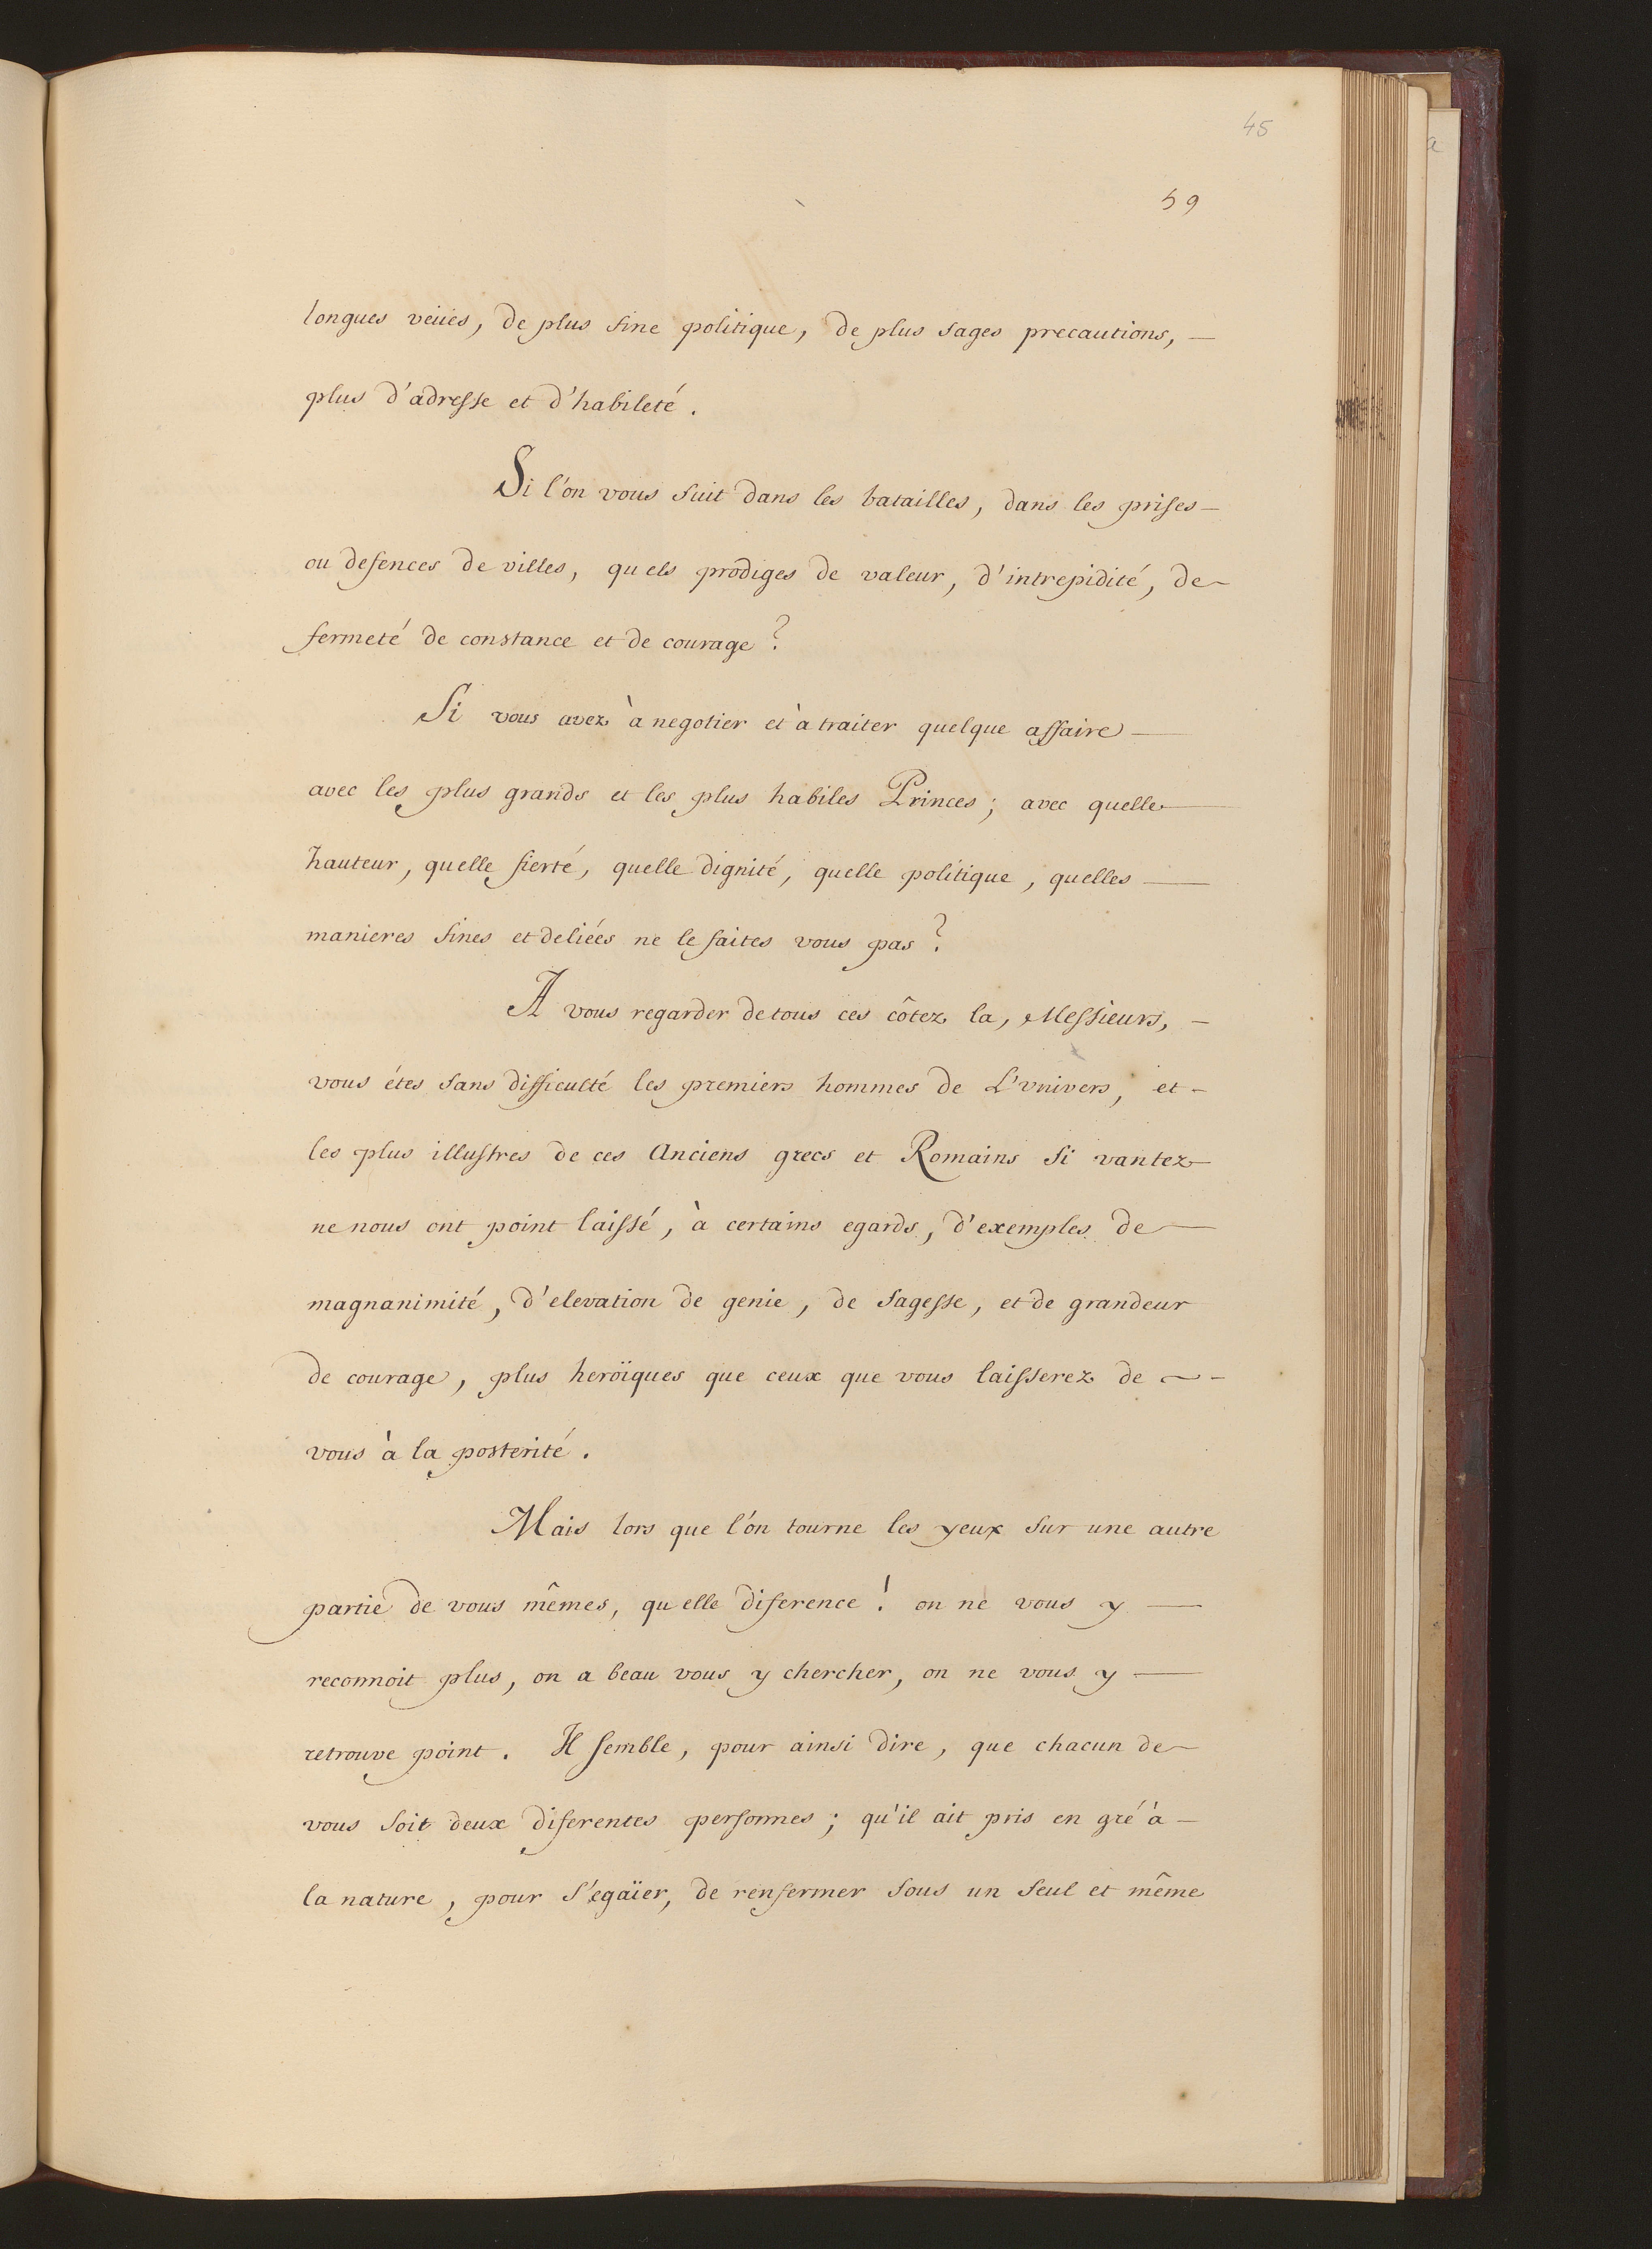 45
59
longues veües, de plus fine politique, de plus sages precautions, —
plus d'adresse et d'habileté.
Si l'on vous suit dans les batailles, dans les prises —
ou defences de villes, quels prodiges de valeur, d'intrepidité, de
fermeté de constance et de courage?
Si vous avez à negotier et à traiter quelque affaire —
avec les plus grands et les plus habiles Princes; avec quelle —
hauteur, quelle fierté, quelle dignité, quelle politique, quelles —
manieres fines et deliées ne le faites vous pas?
A vous regarder de tous ces côtez la, Messieurs, —
vous étes sans difficulté les premiers hommes de L'vnivers, et —
les plus illustres de ces Anciens grecs et Romains si vantez
ne nous ont point laissé, à certains egards, d'exemples de —
magnanimité, d'elevation de genie, de sagesse, et de grandeur
de courage, plus heroïques que ceux que vous laisserez de ~ -
vous à la posterité.
Mais lors que l'on tourne les yeux sur une autre
partie de vous mêmes, quelle diference! on ne vous y —
reconnoit plus, on a beau vous y chercher, on ne vous y —
retrouve point. Il semble, pour ainsi dire, que chacun de
vous soit deux diferentes personnes; qu'il ait pris en gré à —
la nature, pour s'egaïer, de renfermer sous un seul et même